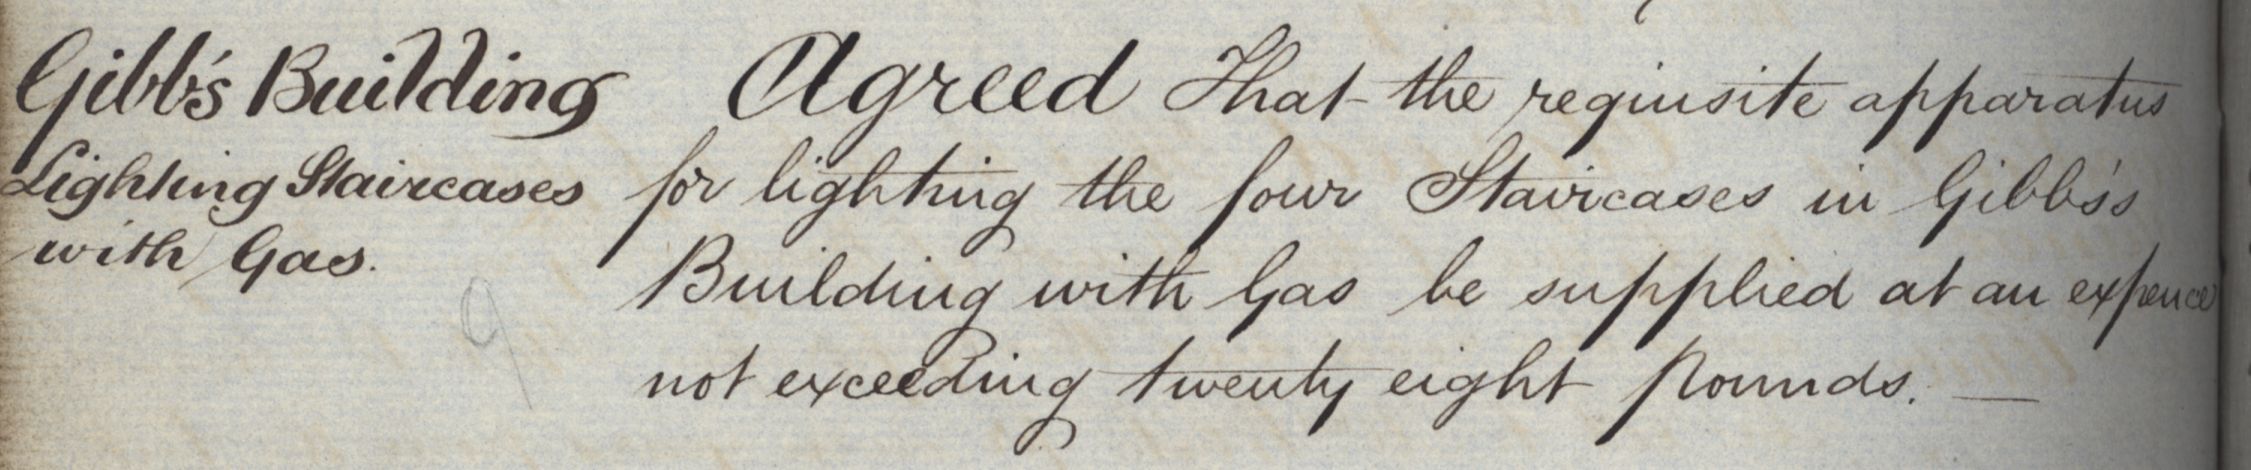 Gibb's Building
Lighting Staircases
with Gas.
9
Agreed That the requisite apparatus
for lighting the four Staircases in Gibbs's
Building with Gas be supplied at an expence
not exceeding twenty eight Pounds. —